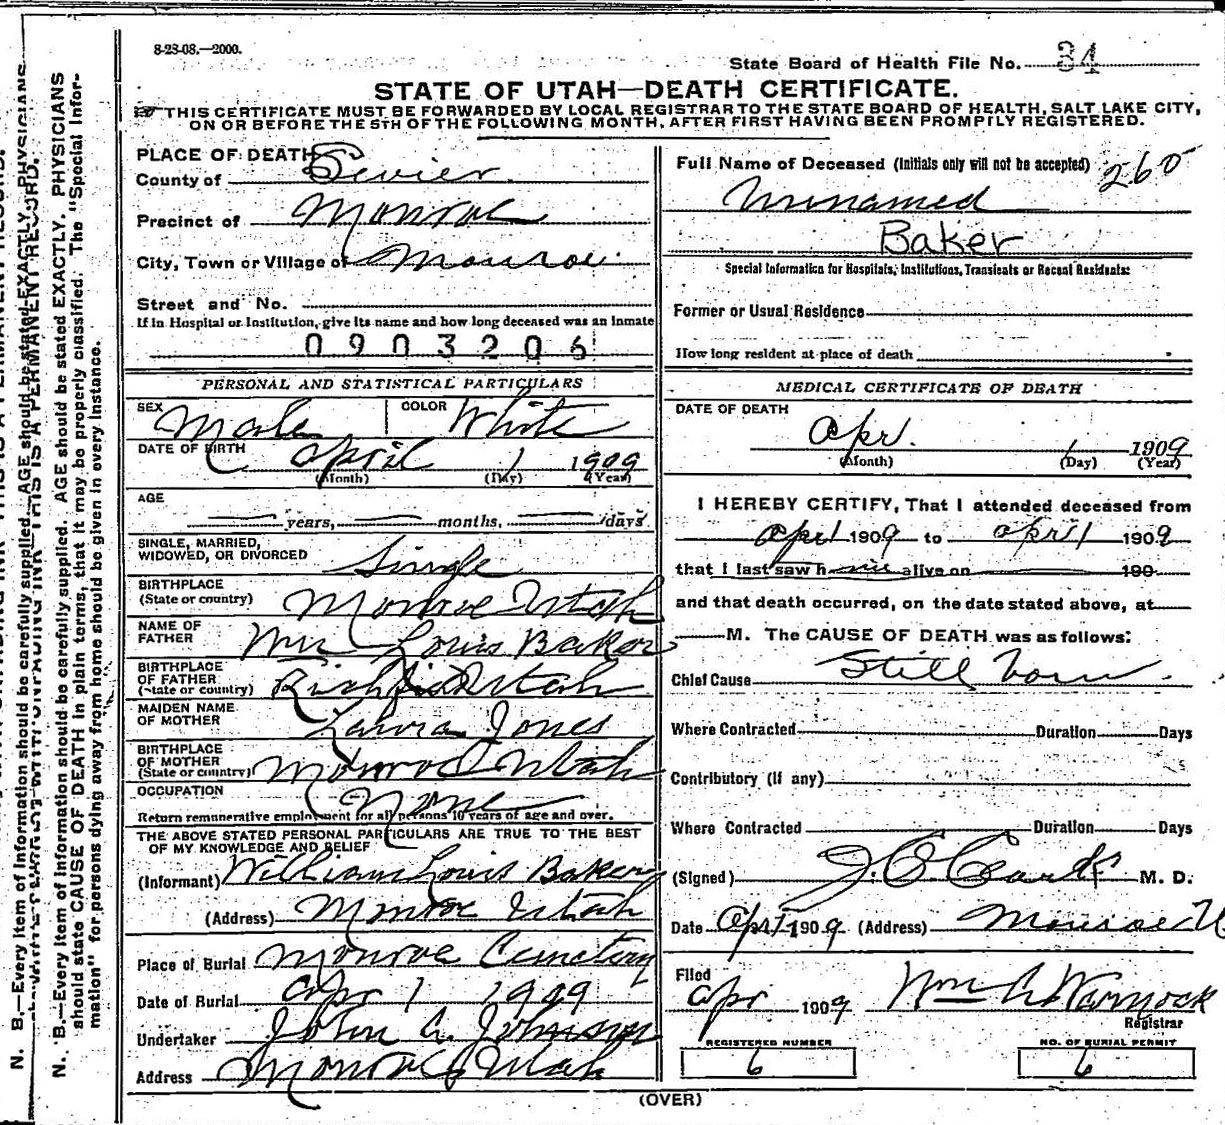 8-28-08.—2000.
State Board of Health File No. 34
STATE OF UTAH—DEATH CERTIFICATE.
THIS CERTIFICATE MUST BE FORWARDED BY LOCAL REGISTRAR TO THE STATE BOARD OF HEALTH, SALT LAKE CITY,
ON OR BEFORE THE 5TH OF THE FOLLOWING MONTH, AFTER FIRST HAVING BEEN PROMPTLY REGISTERED.
PLACE OF DEATH
County of Sevier
Precinct of Monroe
City, Town or Village of Monroe
Street and No.
If in Hospital or Institution, give its name and how long deceased was an Inmate
0903206
PERSONAL AND STATISTICAL PARTICULARS
SEX Male COLOR White
DATE OF BIRTH April 1 1909
(Month) (Day) (Year)
AGE
years, months, days
SINGLE, MARRIED,
WIDOWED, OR DIVORCED Single
BIRTHPLACE
(State or country) Monroe Utah
NAME OF
FATHER Wm Louis Baker
BIRTHPLACE
OF FATHER
(State or country) Richfield Utah
MAIDEN NAME
OF MOTHER Laura Jones
BIRTHPLACE
OF MOTHER
(State or country) Monroe Utah
OCCUPATION None
Return remunerative employment for all persons 10 years of age and over.
THE ABOVE STATED PERSONAL PARTICULARS ARE TRUE TO THE BEST
OF MY KNOWLEDGE AND BELIEF
(Informant) William Louis Baker
(Address) Monroe Utah
Place of Burial Monroe Cemetery
Date of Burial Apr 1 1909
Undertaker John A. Johnson
Address Monroe Utah
Full Name of Deceased (Initials only will not be accepted) 260
Unnamed
Baker
Special Information for Hospitals, Institutions, Transients or Recent Residents:
Former or Usual Residence
How long resident at place of death
MEDICAL CERTIFICATE OF DEATH
DATE OF DEATH
Apr. 1 1909
(Month) (Day) (Year)
I HEREBY CERTIFY, That I attended deceased from
Apr 1 1909 to Apr 1 1909
that I last saw h alive on 190
and that death occurred, on the date stated above, at
M. The CAUSE OF DEATH was as follows:
Chief Cause Still born
Where Contracted Duration Days
Contributory (if any)
Where Contracted Duration Days
(Signed) J. E. M. D.
Date Apr 1 1909 (Address) Monroe U
Filed
Apr 1909 Wm A Warnock
Registrar
REGISTERED NUMBER
6
NO. OF BURIAL PERMIT
6
(OVER)
N. B.—Every item of information should be carefully supplied. AGE should be stated EXACTLY. PHYSICIANS
should state CAUSE OF DEATH in plain terms, that it may be properly classified. The "Special Infor-
mation" for persons dying away from home should be given in every instance.
N. B.—Every item of information should be carefully supplied. AGE should be stated EXACTLY. PHYSICIANS